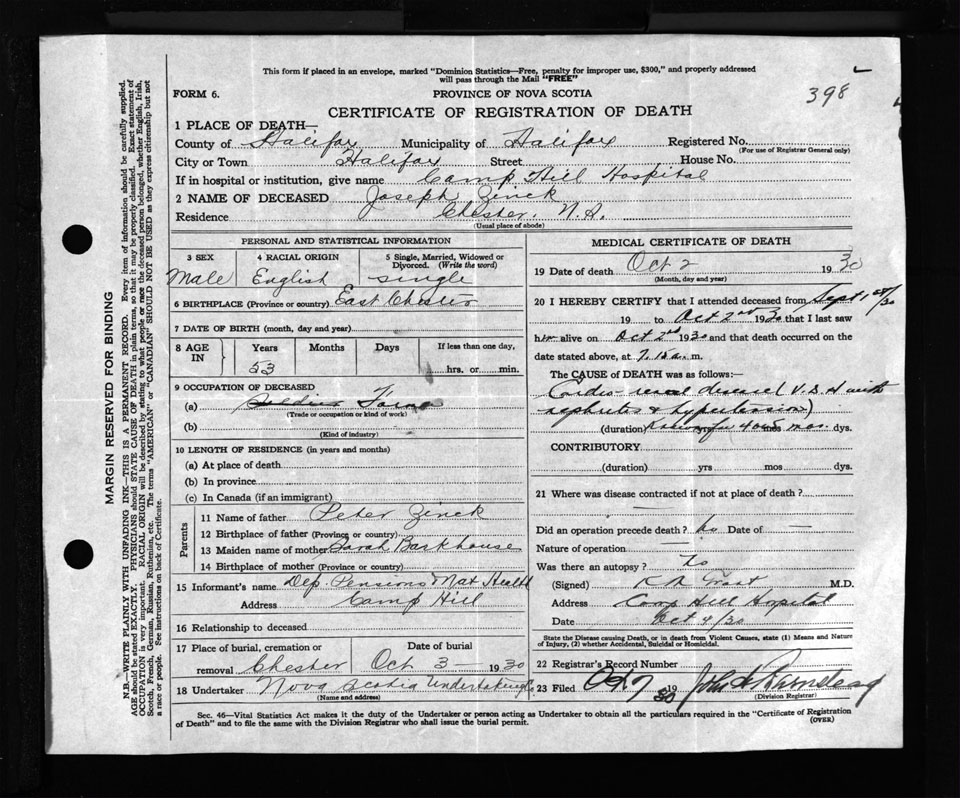 This form if placed in an envelope, marked "Dominion Statistics—Free, penalty for improper use, $300," and properly addressed
will pass through the Mail "FREE"
FORM 6.
PROVINCE OF NOVA SCOTIA
398
CERTIFICATE OF REGISTRATION OF DEATH
1 PLACE OF DEATH—
County of Halifax Municipality of Halifax Registered No.
(For use of Registrar General only)
City or Town Halifax Street House No.
If in hospital or institution, give name Camp Hill Hospital
2 NAME OF DECEASED Joseph Zinck
Residence Chester, N.S.
(Usual place of abode)
PERSONAL AND STATISTICAL INFORMATION
3 SEX 4 RACIAL ORIGIN 5 Single, Married, Widowed or
Divorced. (Write the word)
Male English single
6 BIRTHPLACE (Province or country) East Chester
7 DATE OF BIRTH (month, day and year)
8 AGE IN Years Months Days If less than one day,
53 hrs. or min.
9 OCCUPATION OF DECEASED
(a) Soldier
(Trade or occupation or kind of work)
(b)
(Kind of industry)
10 LENGTH OF RESIDENCE (in years and months)
(a) At place of death
(b) In province
(c) In Canada (if an immigrant)
Parents
11 Name of father Peter Zinck
12 Birthplace of father (Province or country)
13 Maiden name of mother Sarah Barkhouse
14 Birthplace of mother (Province or country)
15 Informant's name Dep. Pensions & Nat Health
Address Camp Hill
16 Relationship to deceased
17 Place of burial, cremation or Date of burial
removal Chester Oct 3 — 1930
18 Undertaker Nova Scotia Undertaking Co
(Name and address)
MEDICAL CERTIFICATE OF DEATH
19 Date of death Oct 2 1930
(Month, day and year)
20 I HEREBY CERTIFY that I attended deceased from Sept 1st/30
19 to Oct 2nd 1930 that I last saw
him alive on Oct 2nd 1930 and that death occurred on the
date stated above, at 7.15 a. m.
The CAUSE OF DEATH was as follows:—
Cardio-renal disease (V.D.H with
nephritis & hypertension)
(duration) yrs 4 or 5 mos. dys.
CONTRIBUTORY
(duration) yrs mos dys.
21 Where was disease contracted if not at place of death?
Did an operation precede death? No Date of —
Nature of operation —
Was there an autopsy? No
(Signed) K A Grant M.D.
Address Camp Hill Hospital
Date Oct 4/30
State the Disease causing Death, or in death from Violent Causes, state (1) Means and Nature
of Injury, (2) whether Accidental, Suicidal or Homicidal.
22 Registrar's Record Number
23 Filed Oct 7 1930
(Division Registrar)
Sec. 46—Vital Statistics Act makes it the duty of the Undertaker or person acting as Undertaker to obtain all the particulars required in the "Certificate of Registration
of Death" and to file the same with the Division Registrar who shall issue the burial permit.
(OVER)
MARGIN RESERVED FOR BINDING
N.B.—WRITE PLAINLY WITH UNFADING INK—THIS IS A PERMANENT RECORD. Every item of information should be carefully supplied.
AGE should be stated EXACTLY. PHYSICIANS should STATE CAUSE OF DEATH in plain terms, so that it may be properly classified. Exact statement of
OCCUPATION is very important. RACIAL ORIGIN will be described by stating to what people or race the deceased person belonged, whether English, Irish,
Scotch, French, German, Russian, Ruthenian, etc. The terms "AMERICAN" or "CANADIAN" SHOULD NOT BE USED as they express citizenship but not
a race or people. See instructions on back of Certificate.